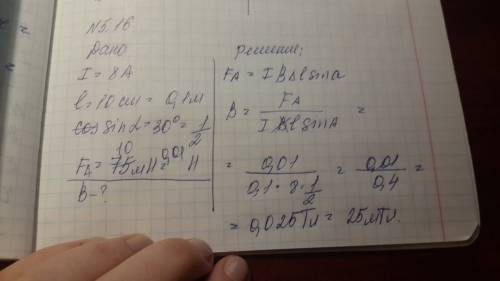 N5.16
Дано
I = 8А
l = 10 см = 0,1м
cos sin α = 30° = 1/2
F_A = 75 10 мН = 0,01 Н
B - ?
решение:
F_A = I B Δl sin α
B = F_A / I Δl sin α =
= 0,01 / 0,1 · 8 · 1/2 = 0,01 / 0,4 =
= 0,025Тл = 25мТл.